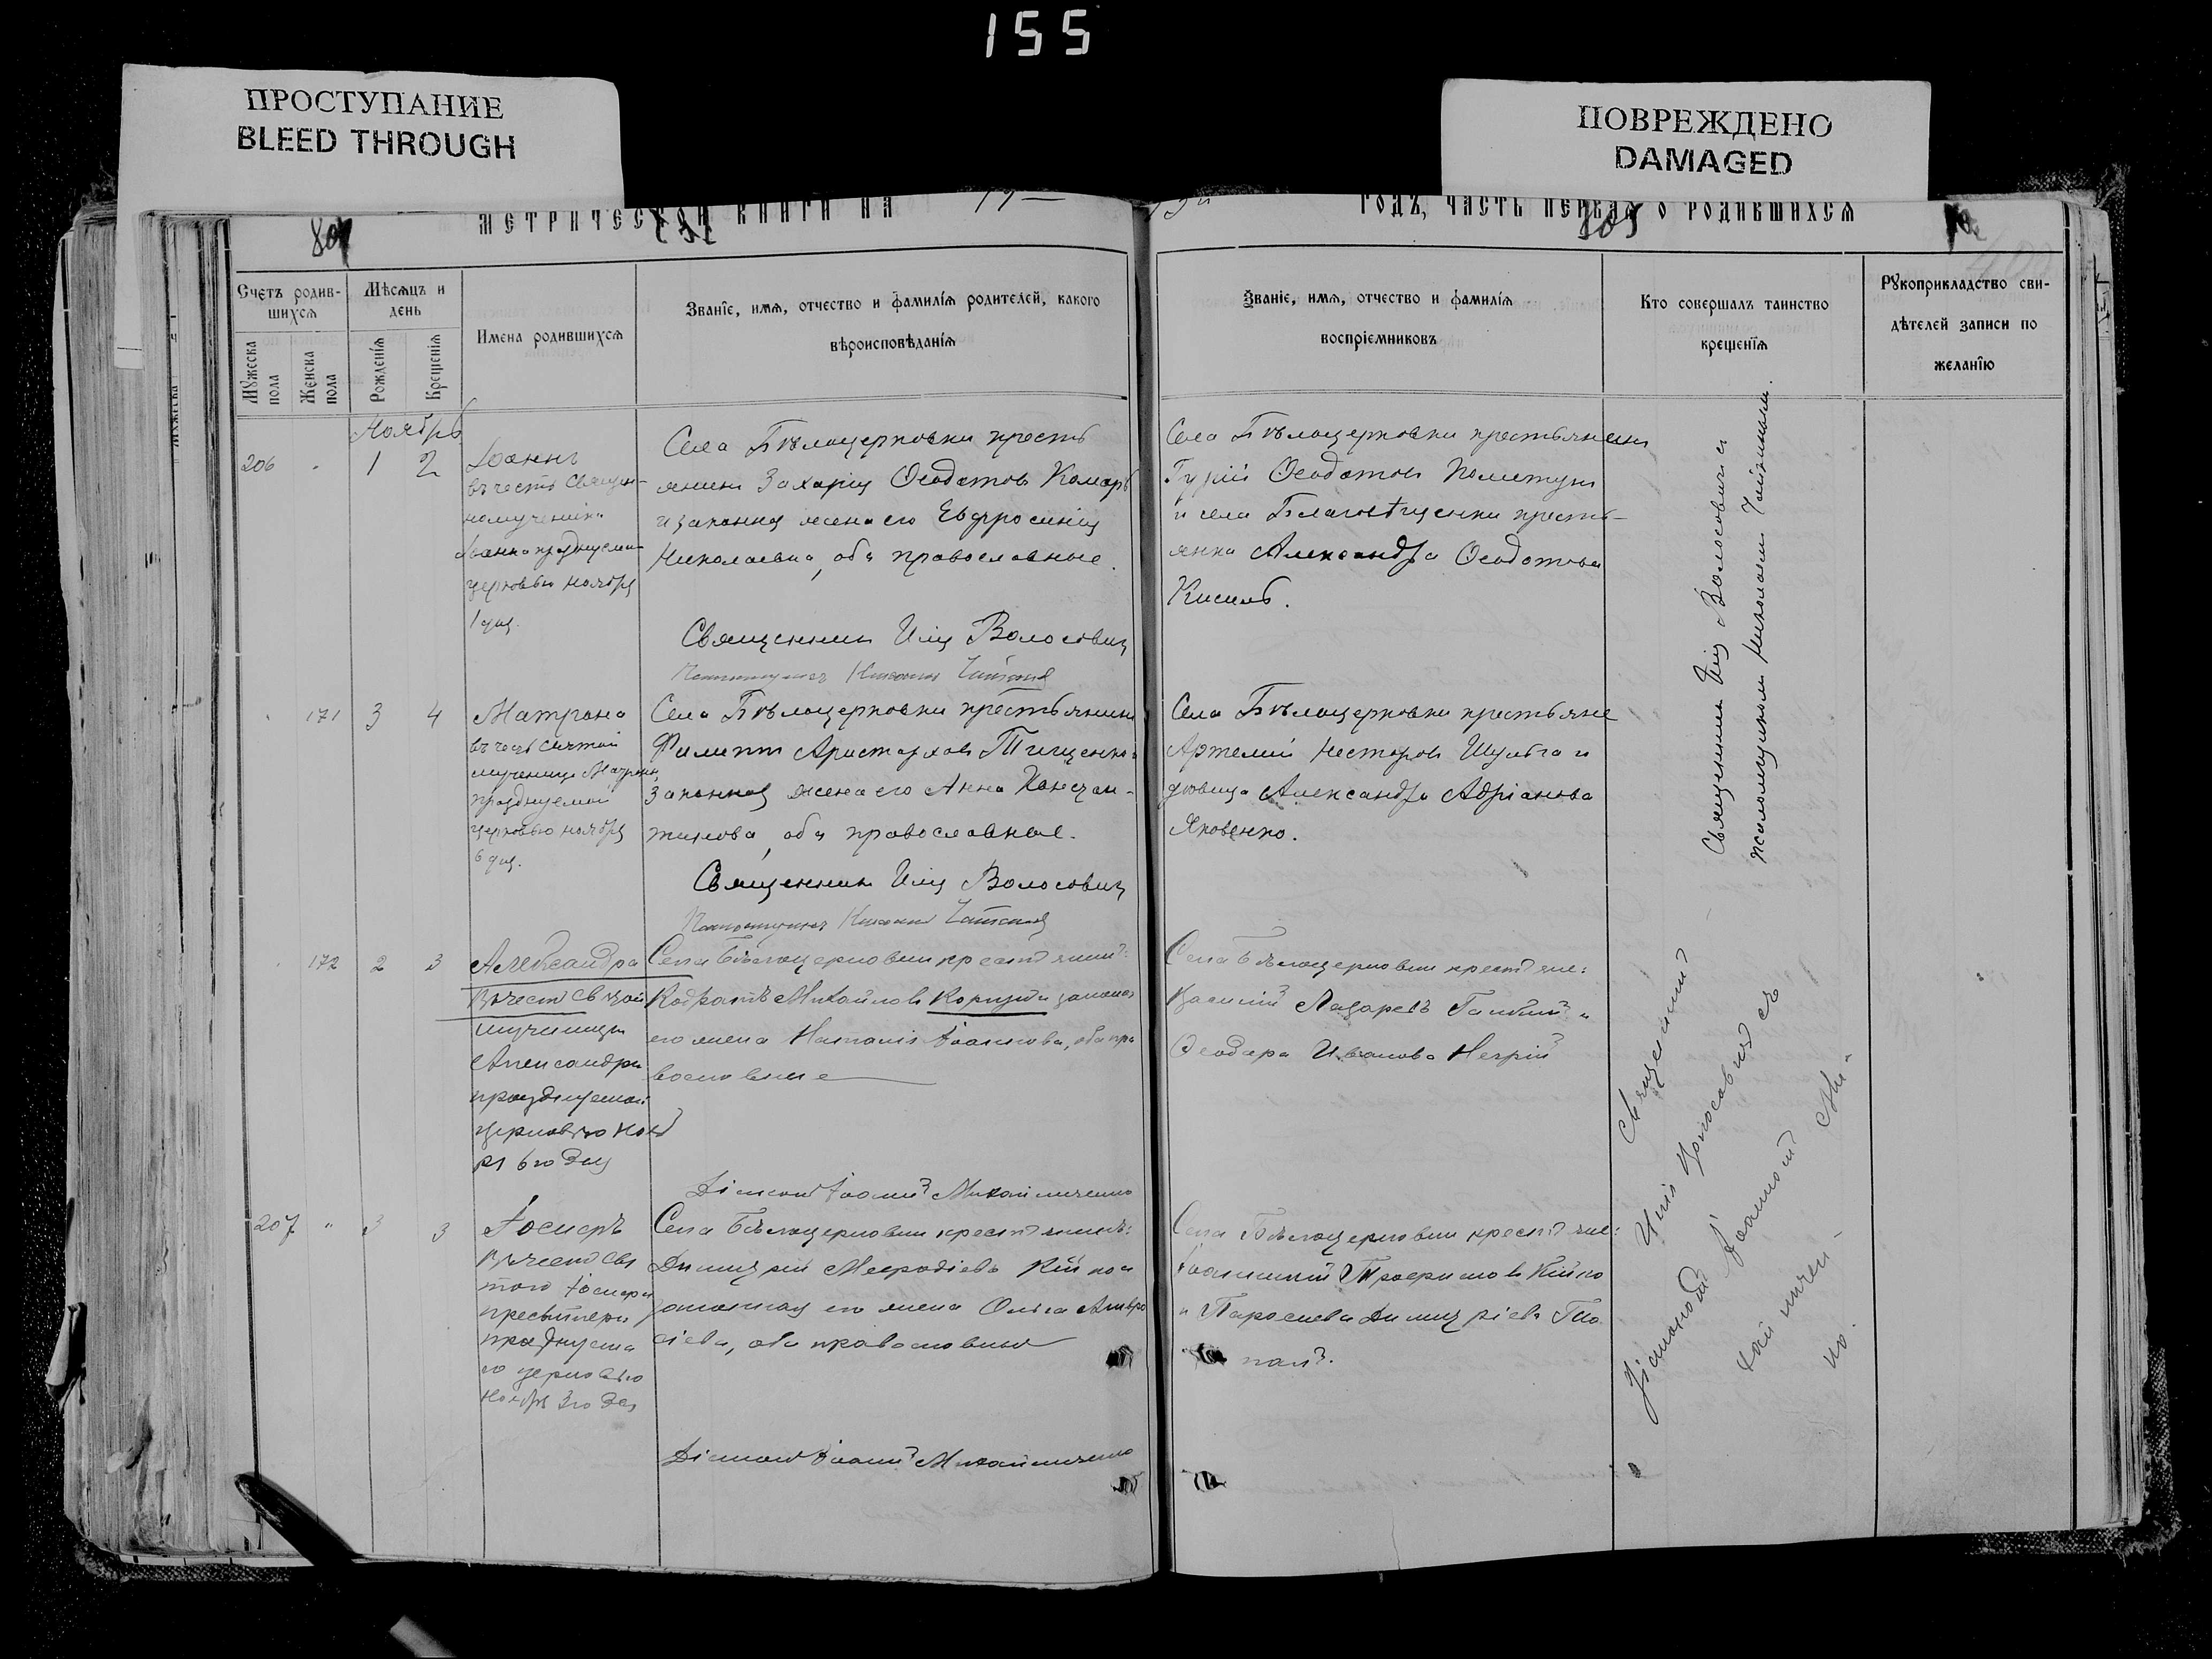 155
ПРОСТУПАНИЕ
BLEED THROUGH
ПОВРЕЖДЕНО
DAMAGED
МЕТРИЧЕСКОЙ КНИГИ НА 19
13й ГОДЪ, ЧАСТЬ ПЕРВАЯ О РОДИВШИХСЯ
Счетъ родив-
шихся
Мужеска
пола
Женска
пола
Мѣсяцъ и
день
Рожденія
Крещенія
Имена родившихся
Званіе, имя, отчество и фамилія родителей, какого
вѣроисповѣданія
Званіе, имя, отчество и фамилія
воспріемниковъ
Кто совершалъ таинство
крещенія
Рукоприкладство сви-
дѣтелей записи по
желанію
Ноябрь
206 1 2
Іоаннъ
въ честь священ-
номученика
Іоанна празднуемаго
церковью ноября
1 дня.
Села Бѣлоцерковки кресть
янинъ Захарія Ѳеодотовъ Комаръ
и законная жена его Евфросинія
Николаевна, оба православные.
Священникъ Илія Волосовичъ
Псаломщикъ Николай
Села Бѣлоцерковки крестьянинъ
Гурій Ѳеодотовъ
и села Благовѣщенки кресть-
янка Александра Ѳеодотова
Кисиль.
171 3 4
Матрона
въ честь святой
мученицы Матроны
празднуемой
церковью ноября
6 дня.
Села Бѣлоцерковки крестьянинъ
Филиппъ Аристарховъ Тищенко и
законная жена его Анна Констан-
тинова, оба православные.
Священникъ Илія Волосовичъ
Псаломщикъ Николай
Села Бѣлоцерковки крестьяне
Артемій Несторовъ Шульга и
дѣвица Александра Адріанова
Яковенко.
Священникъ Илія Волосовичъ и
псаломщикомъ Николаемъ
172 2 3
Александра
Въ честь святой
мученицы
Александры
празднуемой
церковью нояб
ря 6го дня
Села Бѣлоцерковки крестьянинъ:
Кодратъ Михайловъ и законая
его жена Наталія Іоаннова, оба пра
вославные
Діаконъ Іоаннъ Михайличенко
Села Бѣлоцерковки крестьяне:
Василій Лазаревъ и
Ѳеодора Иванова Негрій
207 " 3 3
Іосифъ
Въ честь свя
того Іосифа
пресвитера
празднуема
го церковью
ноября 3го дня
Села Бѣлоцерковки крестьянинъ:
Димитрій Меѳодіевъ Кійко и
законная его жена Ольга Амвро
сіева, оба православные
Діаконъ Іоаннъ Михайличенко
Села Бѣлоцерковки крестьяне:
Трофимовъ Кійко
и Параскева Димитріева
Священникъ
Илія Волосовичъ съ
Діакономъ Іоанномъ Ми-
хайличен-
ко.